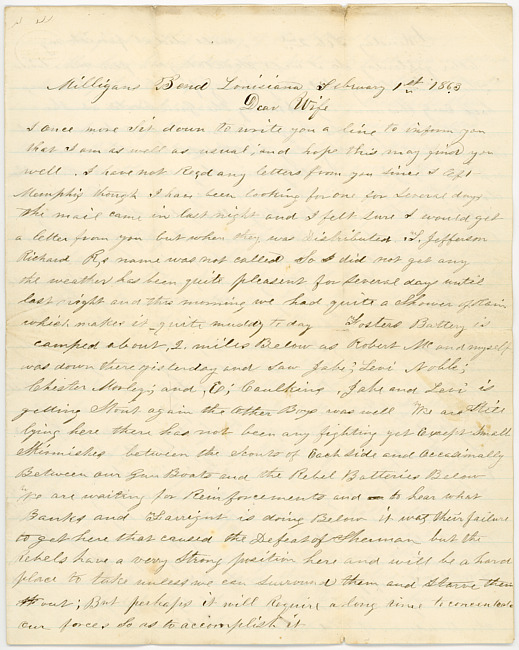 Milligans Bend Louisiana February 1st 1863
Dear Wife
I once more Sit down to write you a line to inform you
that I am as well as usual, and hope this may find you
well. I have not Recd any letters from you since I left
Memphis though I have been looking for one for Several days
the mail came in last night and I felt Sure I would get
a letter from you but when they was distributed T. Jefferson
Richard Rs name was not called So I did not get any
the weather has been quite pleasent for Several days until
last night and this morning we had quite a Shower of Rain
which makes it quite muddy to day Fosters Battery is
camped about 2 miles Below us Robert Mc and myself
was down there yisterday and Saw Jake; Levi Noble;
Chester Morley; and C; Caulkins, Jake and Levi is
getting Stout again the Other Boys was well We are Still
lying here there has not been any fighting yet Except Small
Skirmishes between the Scouts of Each side and Occasionally
Between our Gun Boats and the Rebel Batteries Below
We are waiting for Reinforcements and to hear what
Banks and Farrigut is doing Below it was their failure
to get here that caused the Defeat of Sherman but the
Rebels have a very Strong position here and will be a hard
place to take unless we can Surround them and Starve them
out; But perhaps it will Require a long time to concentrate
our forces So as to accomplish it